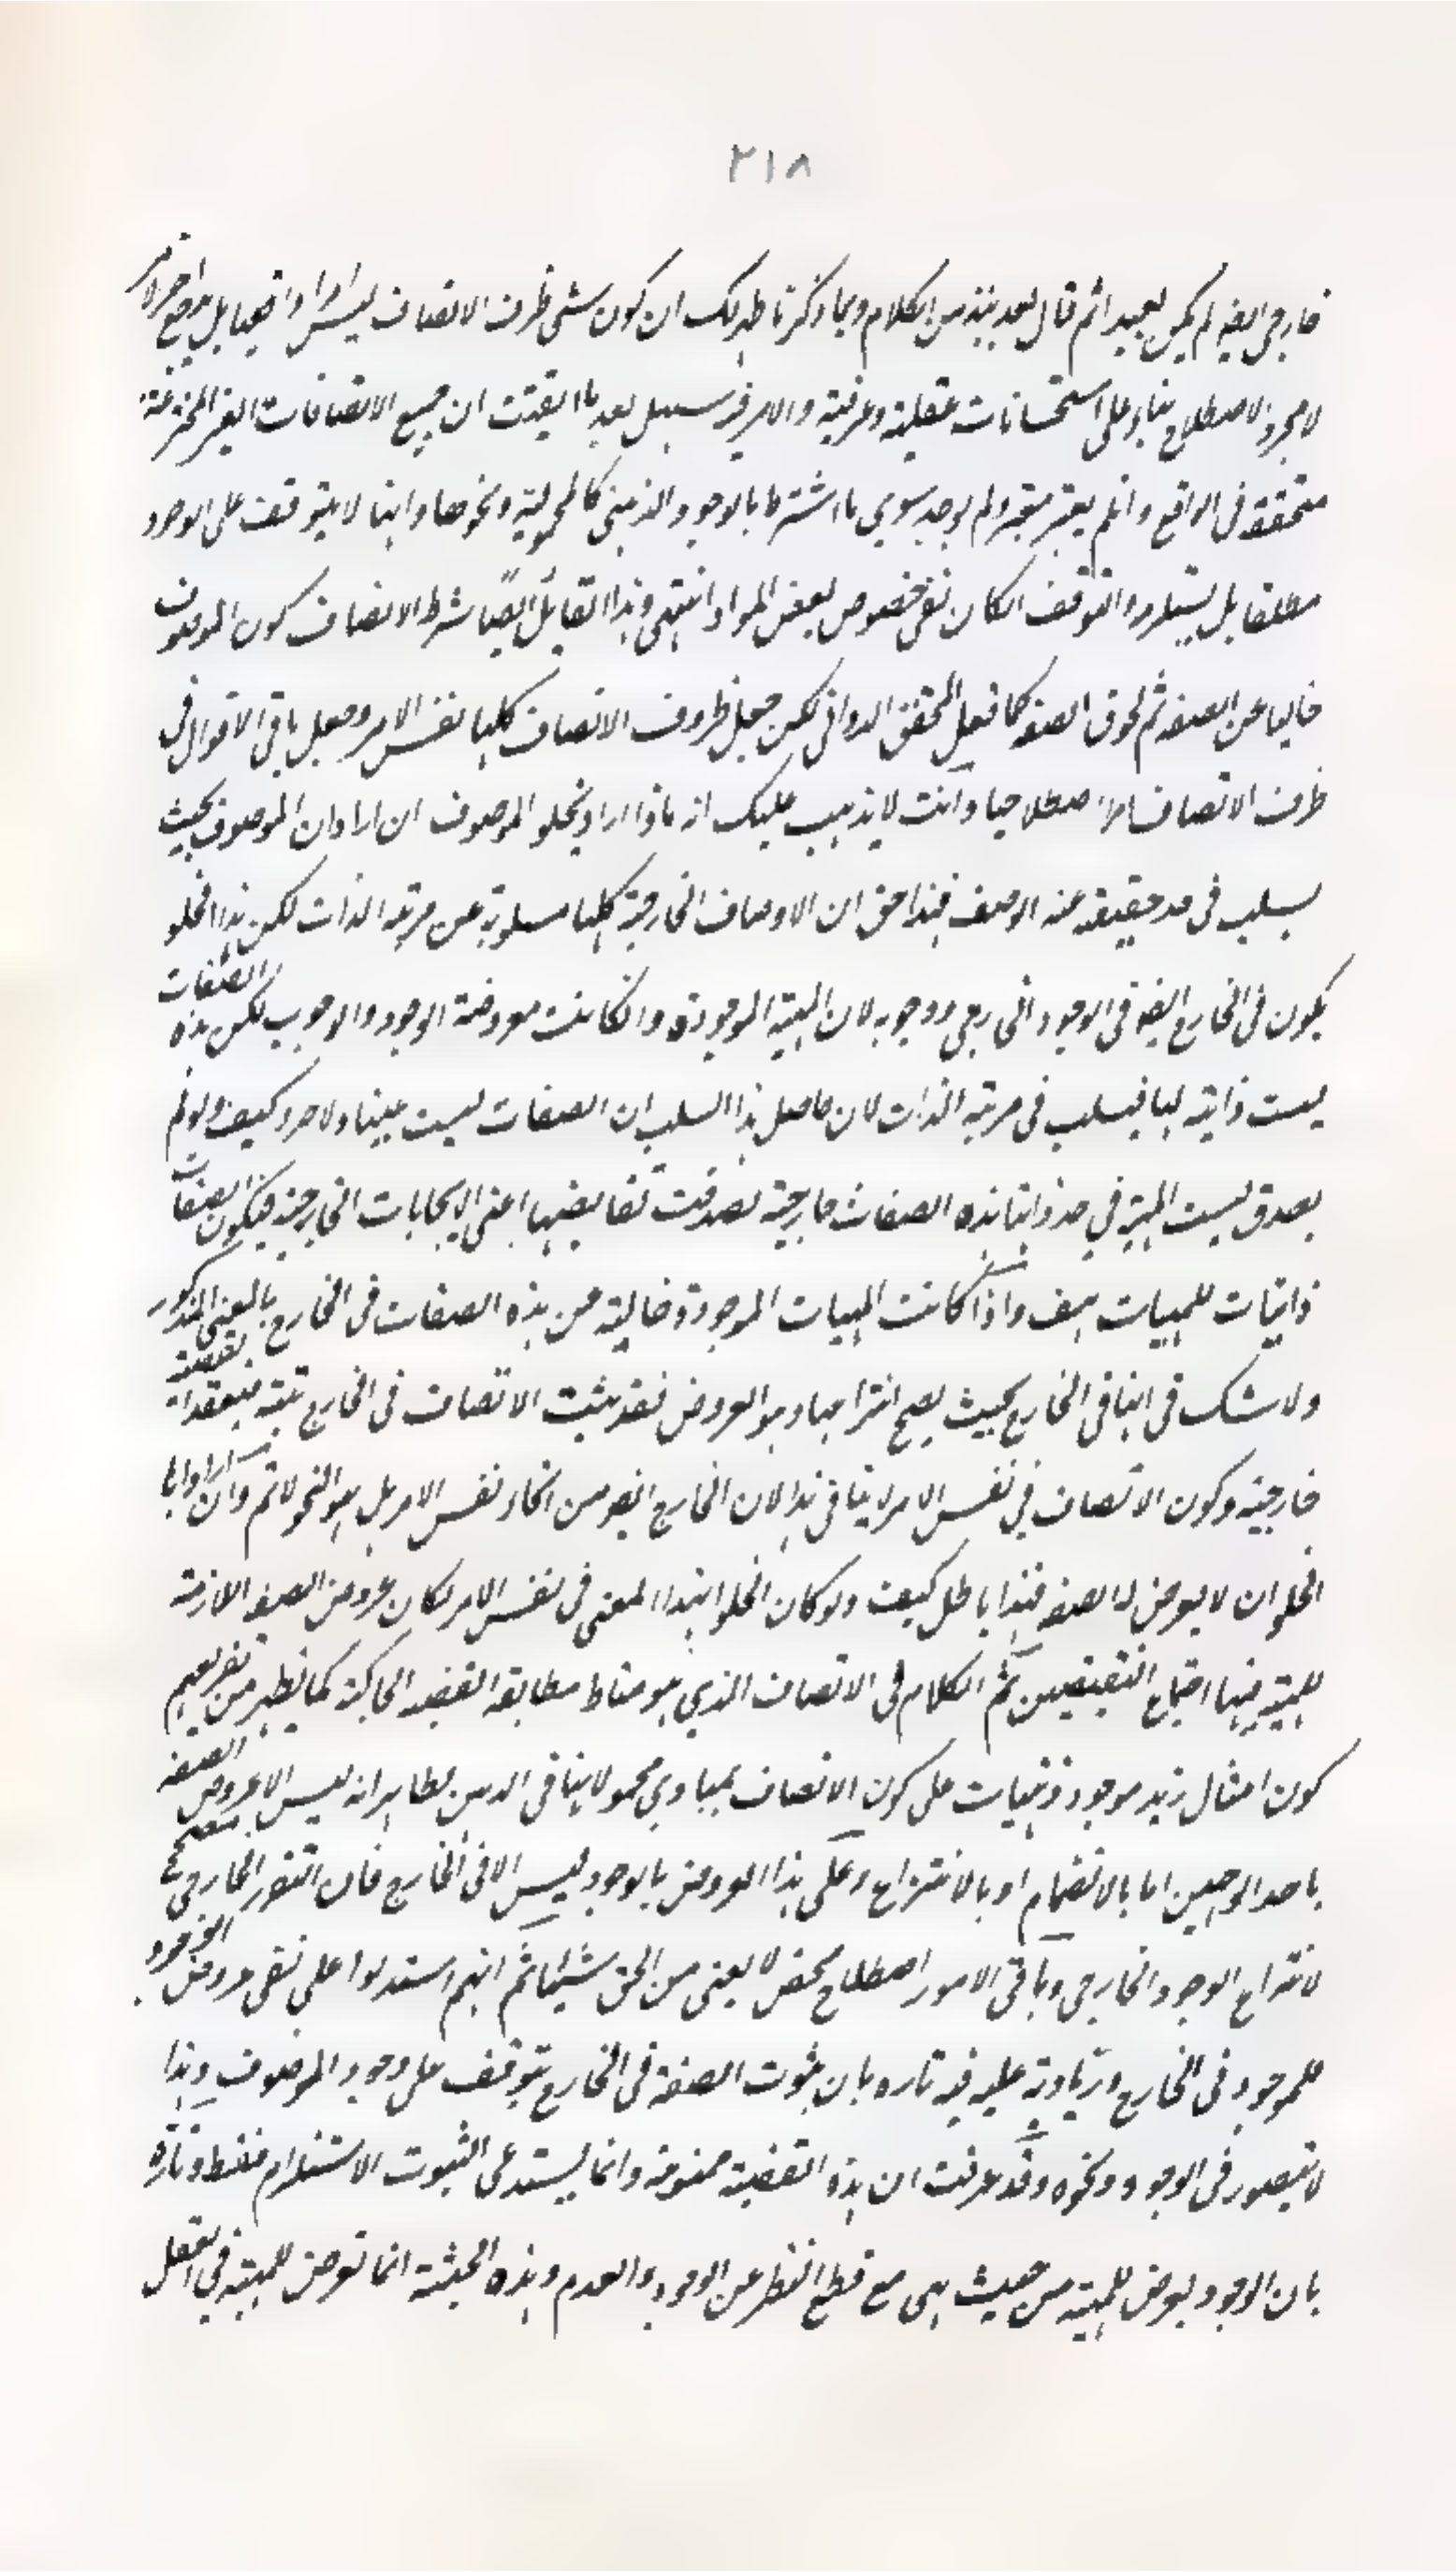 ٢١٨
خارجى ايضا لم يكن بعيدا ثم قال بعد نبذ من الكلام وبما ذكرنا ظهر لك ان كون شى ظرف الاتصاف ليس امرا واقعيا بل يرجع اخر الامر
لا مجرد الاصطلاح بناء على استحسانات عقلية وعرفية والامر فيه سهل بعد ما ايقنت ان جميع الاتصافات الغير المخترعة
متحققة فى الواقع وان لم يعتبر معتبر ولم يوجد سوى ما اشترط بالوجود الذهنى كالمحمولية ونحوها وانها لا يتوقف على الوجود
مطلقا بل يستلزم والتوقف لكان نفى خصوص بعض المواد انتهى وهذا القائل ايضا شرط الاتصاف كون الموصوف
خاليا عن الصفة ثم لحوق الصفة كما فعل المحقق الدوانى لكن جعل ظروف الاتصاف كلها نفس الامر وجعل باقى الاقوال فى
ظرف الاتصاف اصطلاحيا وانت لا يذهب عليك انه ماذا اراد بخلو الموصوف ان اراد ان الموصوف بحيث
يسلب فى حد حقيقته عنه الوصف فهذا حق ان الاوصاف الخارجية كلها مسلوبة عن مرتبة الذات لكن هذا الخلو
يكون فى الخارج ايضا فى الوجود الخارجى ووجوبه لان المهية الموجودة وان كانت معروضة الوجود والوجوب لكن هذه الصفات
ليست ذاتية لها فيسلب فى مرتبة الذات لان حاصل هذا السلب ان الصفات ليست عينا ولا جزء كيف ولو لم
يصدق ليست المهية فى حد ذاتها هذه الصفات خارجية لصدقت نقايضها اعنى الايجابات الخارجية فيكون الصفات
ذاتيات للمهيات هف واذا كانت المهيات الموجودة خالية عن هذه الصفات فى الخارج بالمعنى المذكور
ولا شك فى انها فى الخارج بحيث يصح انتزاعها وهو العروض فقد ثبت الاتصاف فى الخارج تنعقد قضية
خارجية وكون الاتصاف فى نفس الامر لا ينافى هذا لان الخارج ايضا من انحاء نفس الامر بل هو النحو الاتم وان ارادوا بالـ
الخلو ان لا يعرض له الصفة فهذا باطل كيف ولو كان الخلو بهذا المعنى فى نفس الامر لكان عروض الصفة اللازمة
للمهية فيها اجتماع النقيضين ثم الكلام فى الاتصاف الذى هو مناط مطابقة القضية الحاكية كما يظهر من تفريعهم
كون امثال زيد موجود ذهنيات على كون الاتصاف بمبادى محمولاتها فى الذهن وظاهر انه ليس الا عروض الصفة
باحد الوجهين اما بالانضمام او بالانتزاع وعلى هذا العروض بالوجود ليس الا فى الخارج فان التقرر الخارجى مصحح
لانتزاع الوجود الخارجى وباقى الامور اصطلاح محض لا يغنى من الحق شيئا ثم انهم استدلوا على نفى عروض الوجود
للموجود فى الخارج وزيادته عليه فيه تاره بان ثبوت الصفة فى الخارج يتوقف على وجود الموصوف وهذا
لا يتصور فى الوجود ونحوه وقد عرفت ان هذه القضية ممنوعة وانما يستدعى الثبوت الاستلزام فقط وتارة
بان الوجود يعرض للمهية من حيث هى مع قطع النظر عن الوجود والعدم وهذه الحيثية انما تعرض للمهية فى العقل